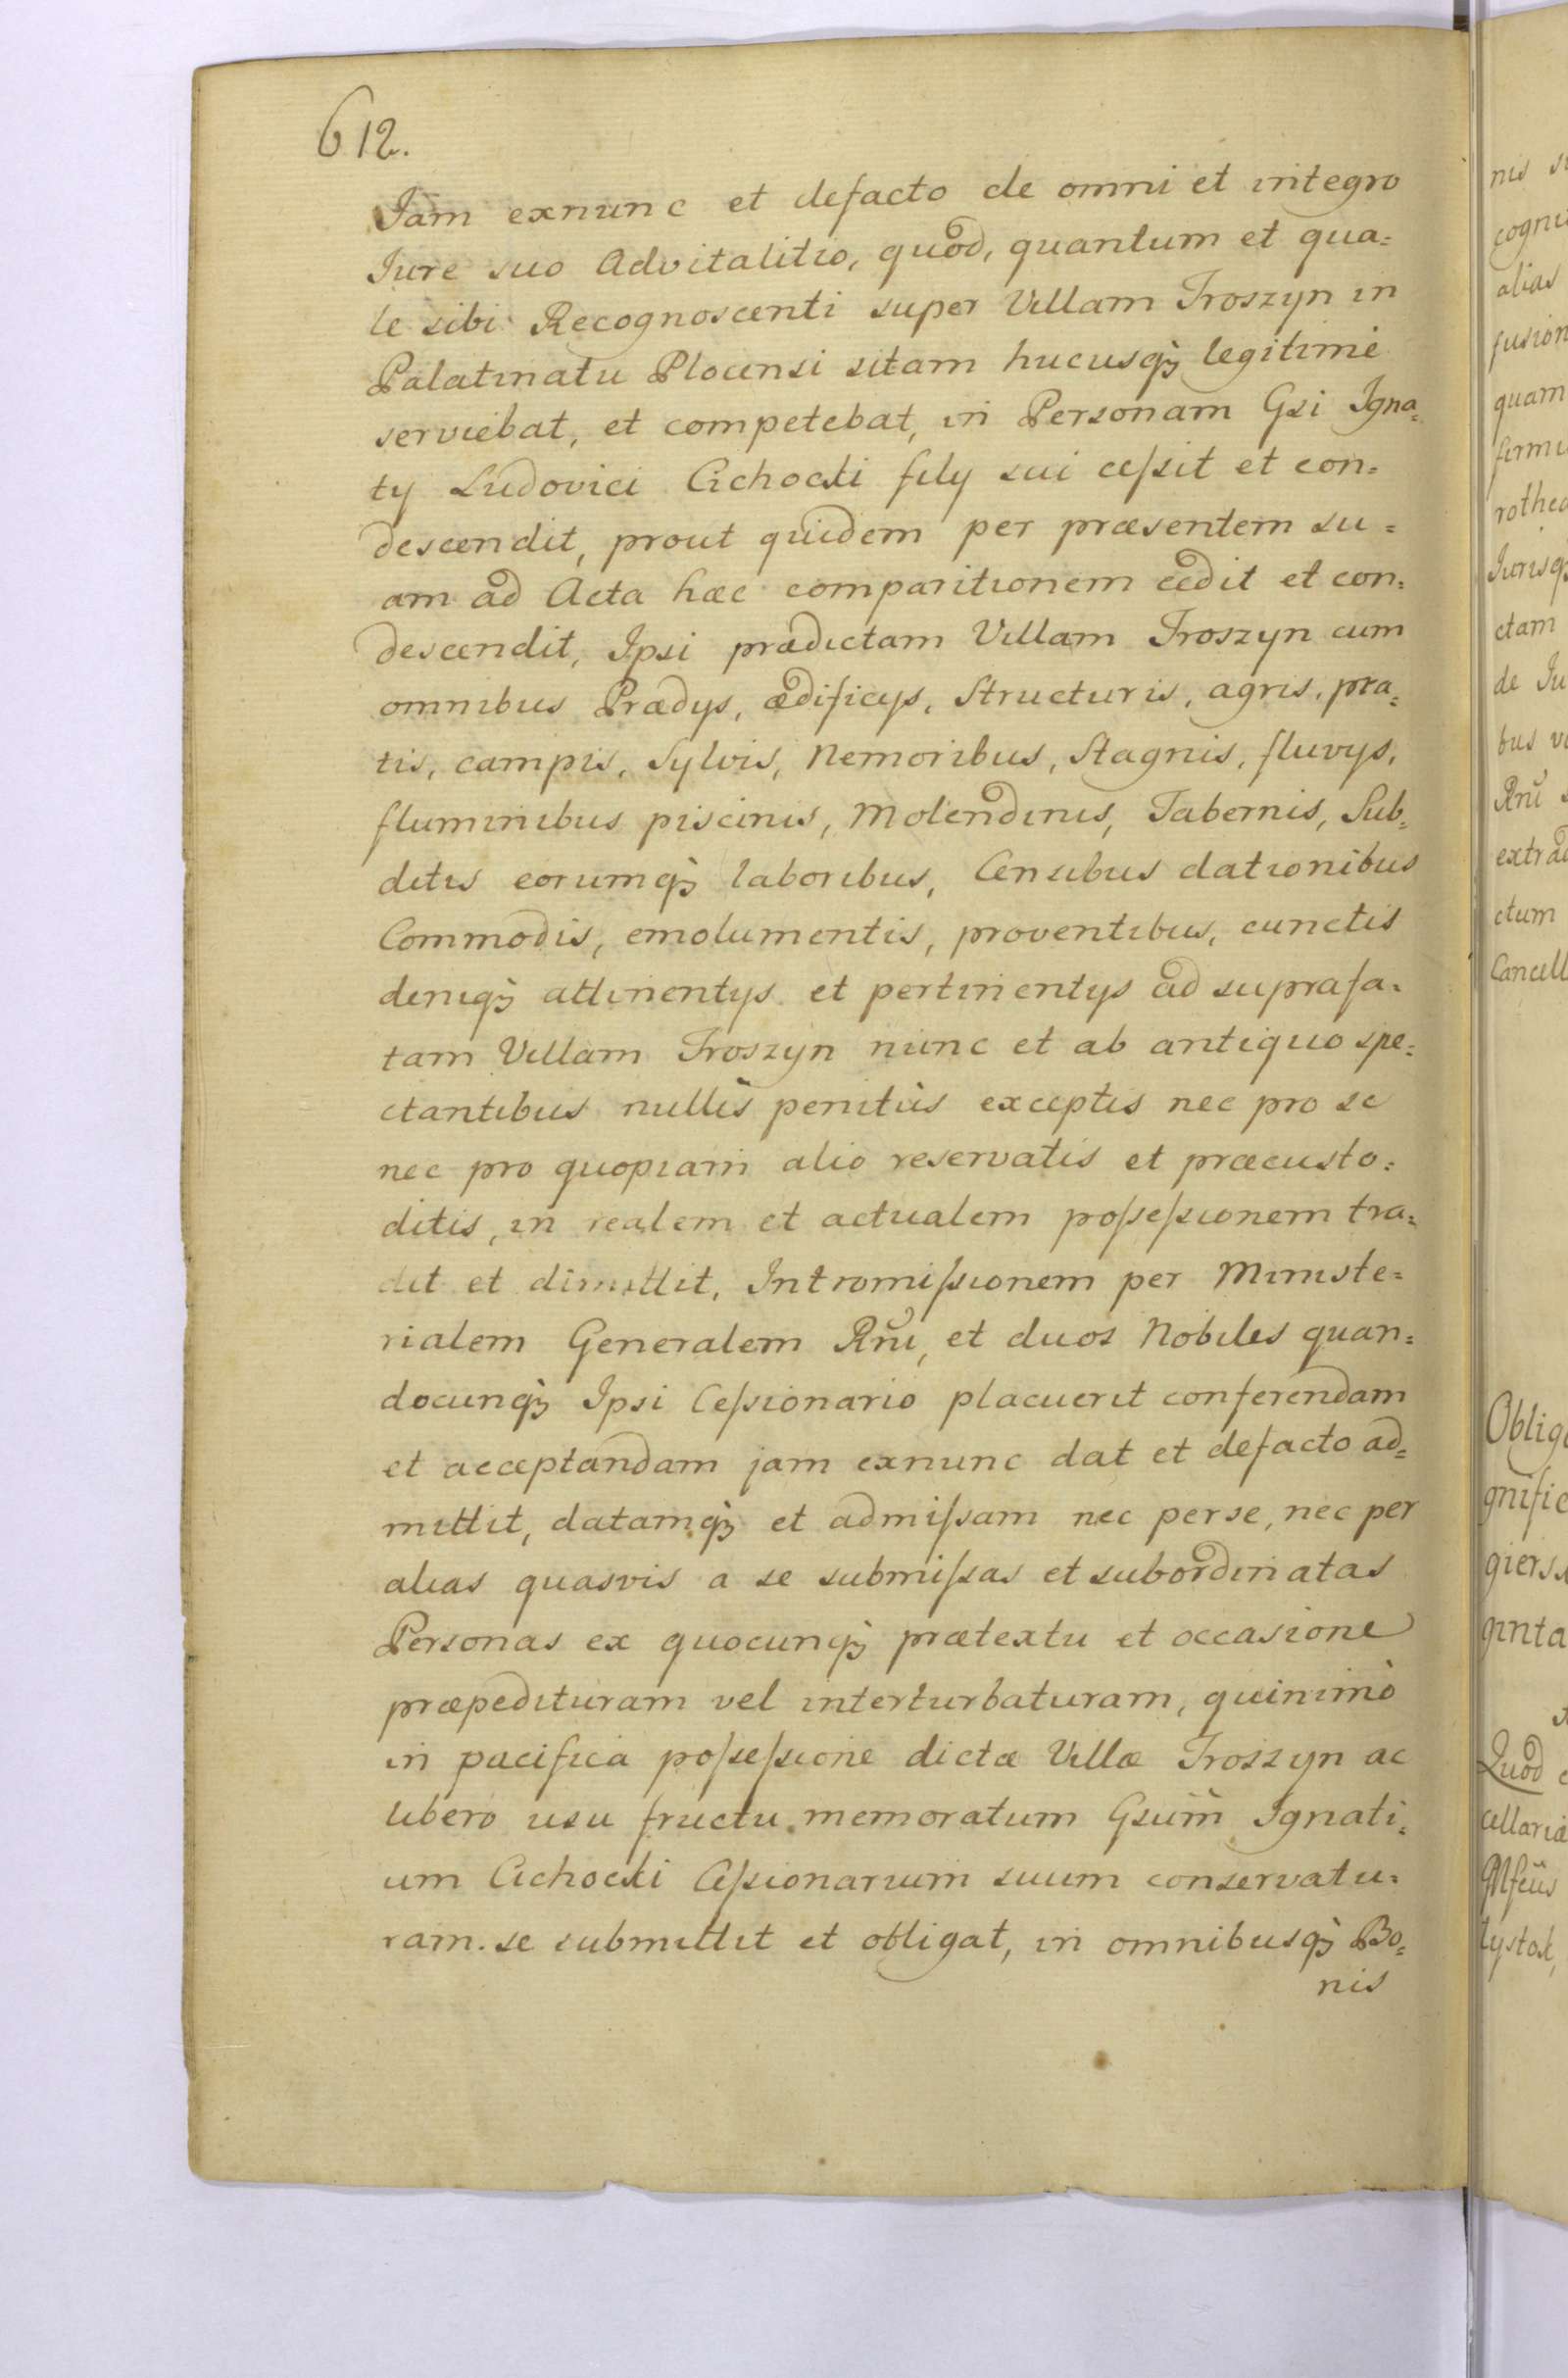 612.
Jam exnunc et defacto de omni et integro
Jure suo Advitalitio, quod, quantum et qua=
le sibi Recognoscenti super Villam Troszyn in
Palatinatu Plocensi sitam hucusq₃ legitimè
serviebat, et competebat, in Personam Gsi Igna=
ty Ludovici Cichocki fily sui cessit et con=
descendit, prout quidem per præsentem su=
am ad Acta hæc comparitionem cedit et con=
descendit, Ipsi prædictam Villam Troszyn cum
omnibus Prædys, ædificys, Structuris, agris, pra=
tis, campis, Sylvis, Nemoribus, Stagnis, fluvys,
fluminibus piscinis, Molendinis, Tabernis, Sub=
ditis eorumq₃ laboribus, Censibus dationibus
Commodis, emolumentis, proventibus, cunctis
deniq₃ attinentys et pertinentys ad suprafa=
tam Villam Troszyn nunc et ab antiquo spe=
ctantibus nullis penitùs exceptis nec pro se
nec pro quopiam alio reservatis et præcusto=
ditis, in realem et actualem possessionem tra=
dit et dimittit, Intromissionem per Ministe=
rialem Generalem Rñi, et duos Nobiles quan=
docunq₃ Ipsi Cessionario placuerit conferendam
et acceptandam jam exnunc dat et defacto ad=
mittit, datamq₃ et admissam nec perse, nec per
alias quasvis a se submissas et subordinatas
Personas ex quocunq₃ prætextu et occasione
præpedituram vel interturbaturam, quinimò
in pacifica possessione dictæ Villæ Troszyn ac
libero usu fructu memoratum Gsum̃ Ignati=
um Cichocki Cessionarium suum conservatu=
ram se submittit et obligat, in omnibusq₃ Bo=
nis
cogni
alias
fusion
quam
firmi
rothea
Jurisq₃
ctam
de Ju
bus v
Rñi
extrad
ctum
Cancell
Oblig
gnific
giersk
ginta
Quod
cellariæ